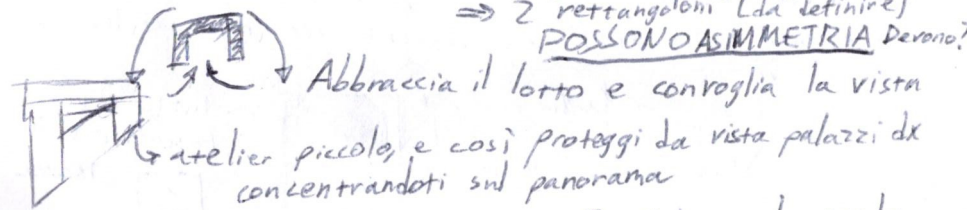 ⇒ 2 rettangoloni (da definire)
POSSONO ASIMMETRIA Devono?
Abbraccia il lotto e convoglia la vista
↳ atelier piccolo, e così proteggi da vista palazzi dx
concentrandoti sul panorama